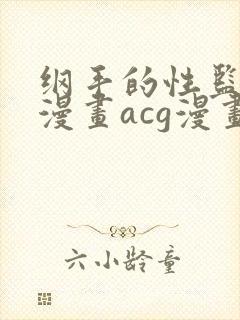 纲手的性监
漫畫acg漫畫
六小龄童